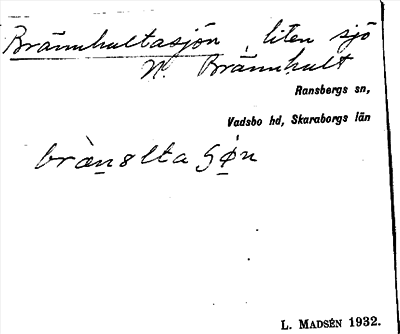 Brännhultasjön, liten sjö
N. Brännhult
Ransbergs sn,
Vadsbo hd, Skaraborgs län
L. MADSÉN 1932.